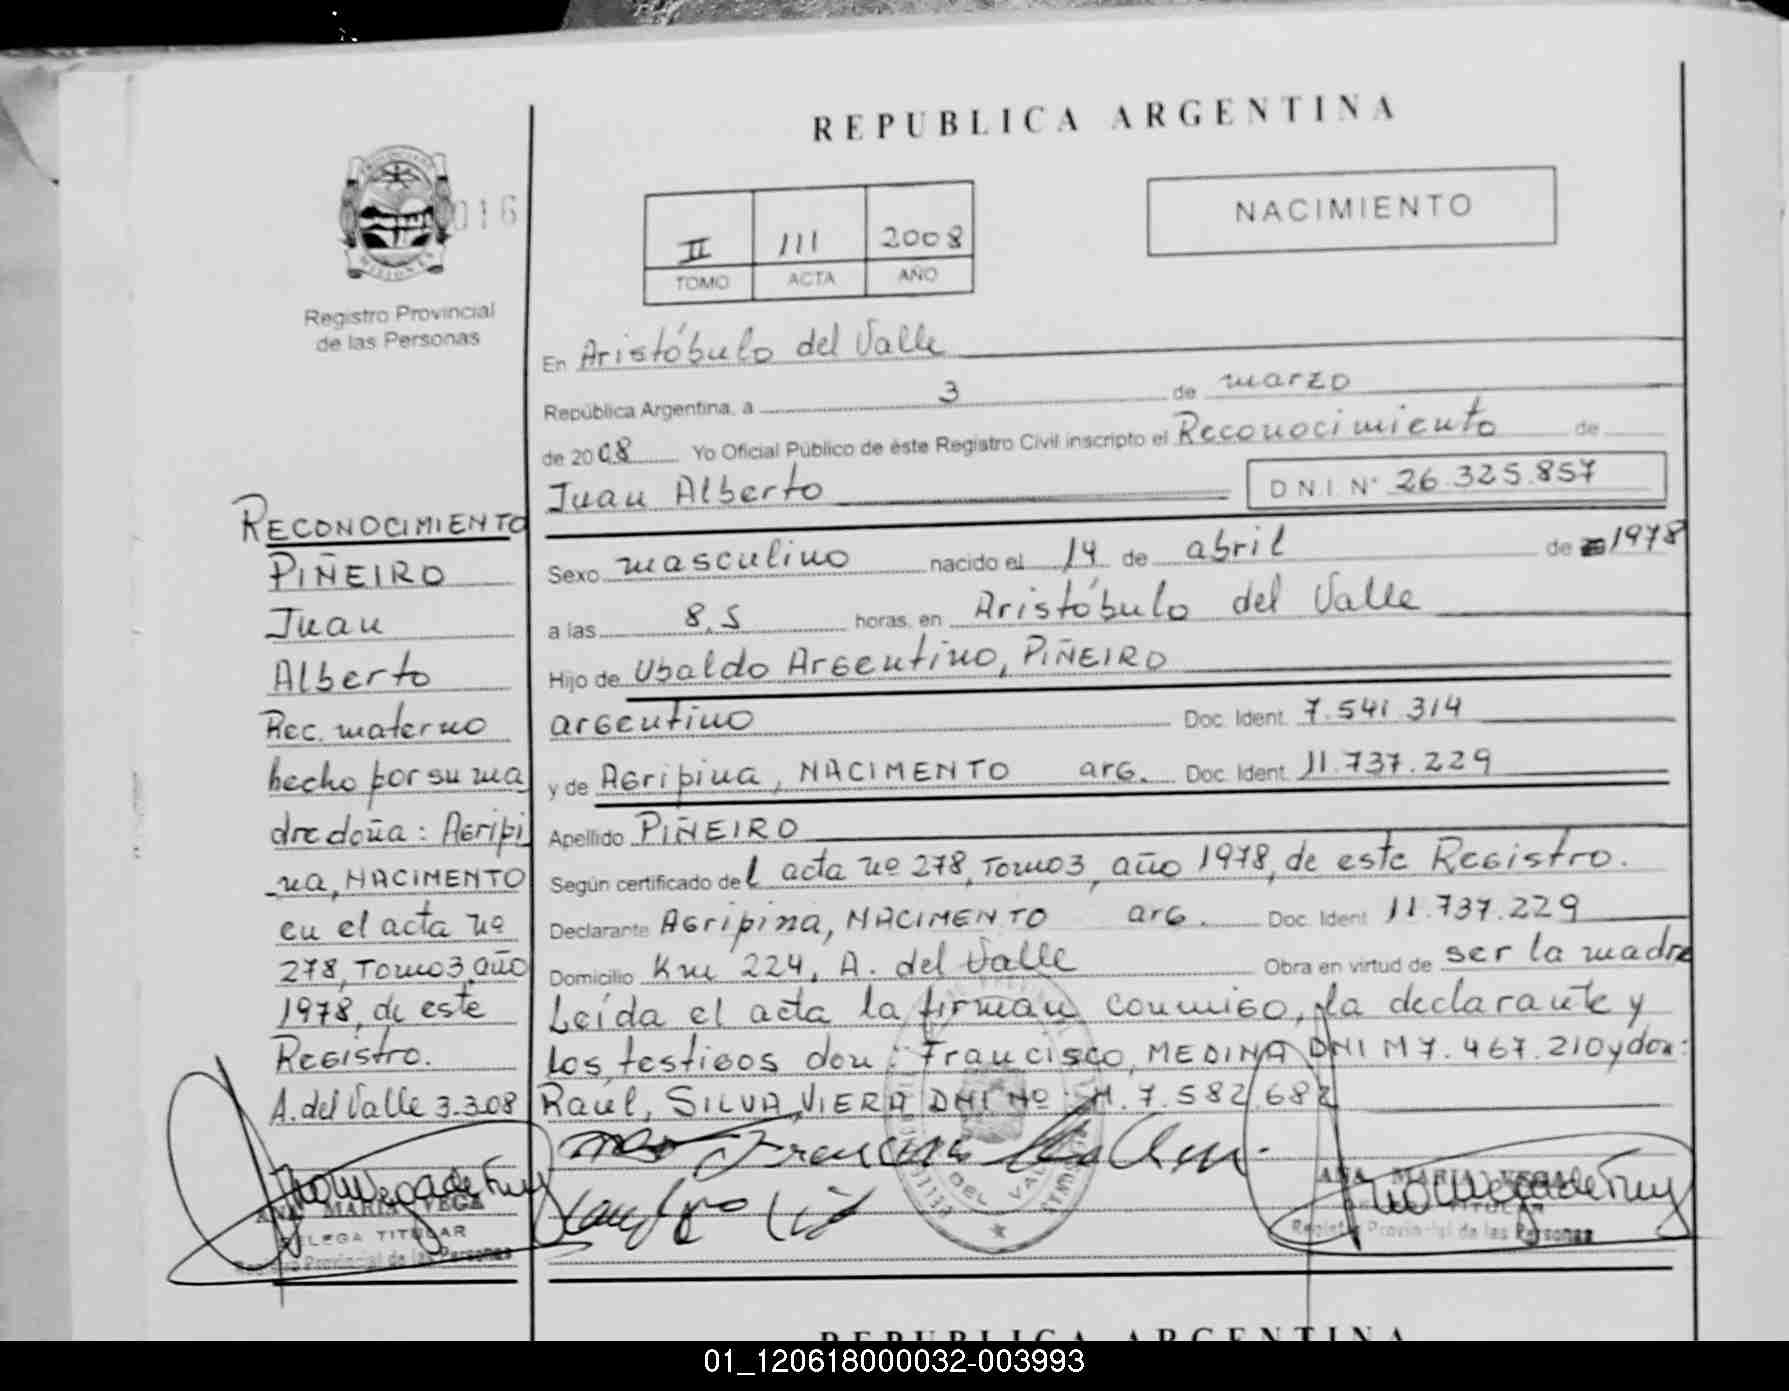 REPUBLICA ARGENTINA
016
MISIONES
Registro Provincial
de las Personas
II 111 2008
TOMO ACTA AÑO
NACIMIENTO
En Aristóbulo del Valle
República Argentina, a 3 de marzo
de 2008 Yo Oficial Público de éste Registro Civil inscripto el Reconocimiento de
Juan Alberto D.N.I. N° 26.325.857
Sexo masculino nacido el 14 de abril de 1978
a las 8,5 horas, en Aristóbulo del Valle
Hijo de Ubaldo Argentino, PIÑEIRO
argentino Doc. Ident. 7.541.314
y de Agripina, NACIMENTO arg. Doc. Ident. 11.737.229
Apellido PIÑEIRO
Según certificado del acta nº 278, Tomo 3, año 1978, de este Registro.
Declarante Agripina, NACIMENTO arg. Doc. Ident 11.737.229
Domicilio Km 224, A. del Valle Obra en virtud de ser la madre
Leída el acta la firman conmigo, la declarante y
los testigos don: Francisco, MEDINA DNI M 7.467.210 y don:
Raul, SILVA VIERA DNI Nº M.7.582.682
RECONOCIMIENTO
PIÑEIRO
Juan
Alberto
Rec. materno
hecho por su ma
dre doña: Agripi
na, NACIMENTO
en el acta nº
278, Tomo 3, año
1978, de este
Registro.
A. del Valle 3.3.08
ANA MARIA VEGA
DELEGA TITULAR
Registro Provincial de las Personas
DEL VALLE
ANA MARIA VEGA
TITULAR
Registro Provincial de las Personas
REPUBLICA ARGENTINA
01_120618000032-003993